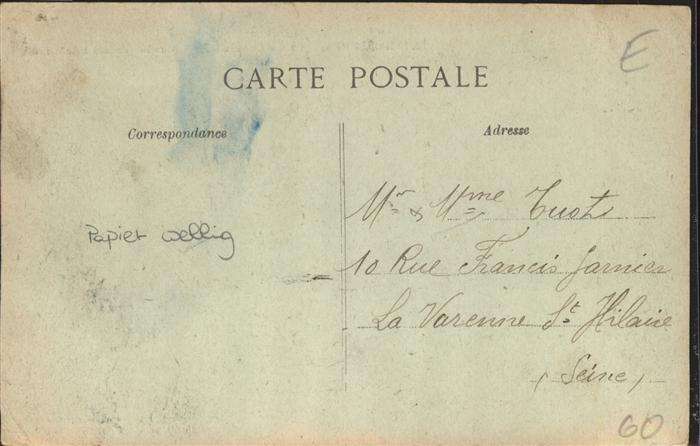 E
CARTE POSTALE
Correspondance
Adresse
Papier wellig
Mr & Mme
10 Rue Francis Garnier
La Varenne St Hilaire
(Seine)
60